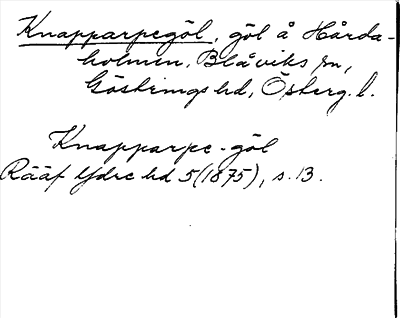 Knapparpegöl, göl å Hårda-
holmen, Blåviks sn,
Göstrings hd, Österg. l.
Knapparpe-göl
Rääf Ydre hd 5(1875), s. 13.